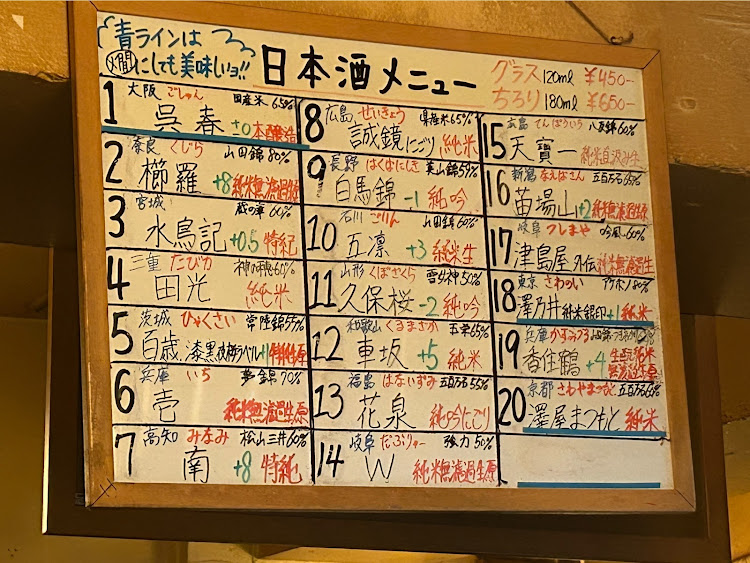 青ラインは
燗にしても美味しいョ!!
日本酒メニュー
グラス 120ml ¥450-
ちろり 180ml ¥650-
1 大阪 ごしゅん 国産米 65%
呉春 ±0 本醸造
2 奈良 くじら 山田錦 80%
櫛羅 +8 純米無濾過生原
3 宮城 蔵の華 60%
水鳥記 +0.5 特純
4 三重 たびか 神の穂 60%
田光 純米
5 茨城 ひゃくさい 常陸錦 55%
百歳 漆黒枝梅ラベル +1 特純生原
6 兵庫 いち 夢錦 70%
壱 純米無濾過生原
7 高知 みなみ 松山三井 60%
南 +8 特純
8 広島 せいきょう 県産米 65%
誠鏡にごり 純米
9 長野 はくばにしき 美山錦 59%
白馬錦 -1 純吟
10 石川 ごりん 山田錦 60%
五凛 +3 純米生
11 山形 くぼざくら 雪女神 50%
久保桜 -2 純吟
12 和歌山 くるまざか 五英 65%
車坂 +5 純米
13 福島 はないずみ 五百万石 55%
花泉 純吟にごり
14 岐阜 だぶりゅー 強力 50%
W 純米無濾過生原
15 広島 てんぽういち 八反錦 60%
天寶一 純米直汲み生
16 新潟 なえばさん 五百万石 65%
苗場山 +2 純米無濾過生原
17 岐阜 つしまや 吟風 60%
津島屋 外伝 純米無濾過生
18 東京 さわのい アケボノ 80%
澤乃井 純米銀印 +1 純米
19 兵庫 かすみつる
香住鶴 +4 生酛純米
無濾過生原
20 京都 さわやまつもと 五百万石 65%
澤屋まつもと 純米